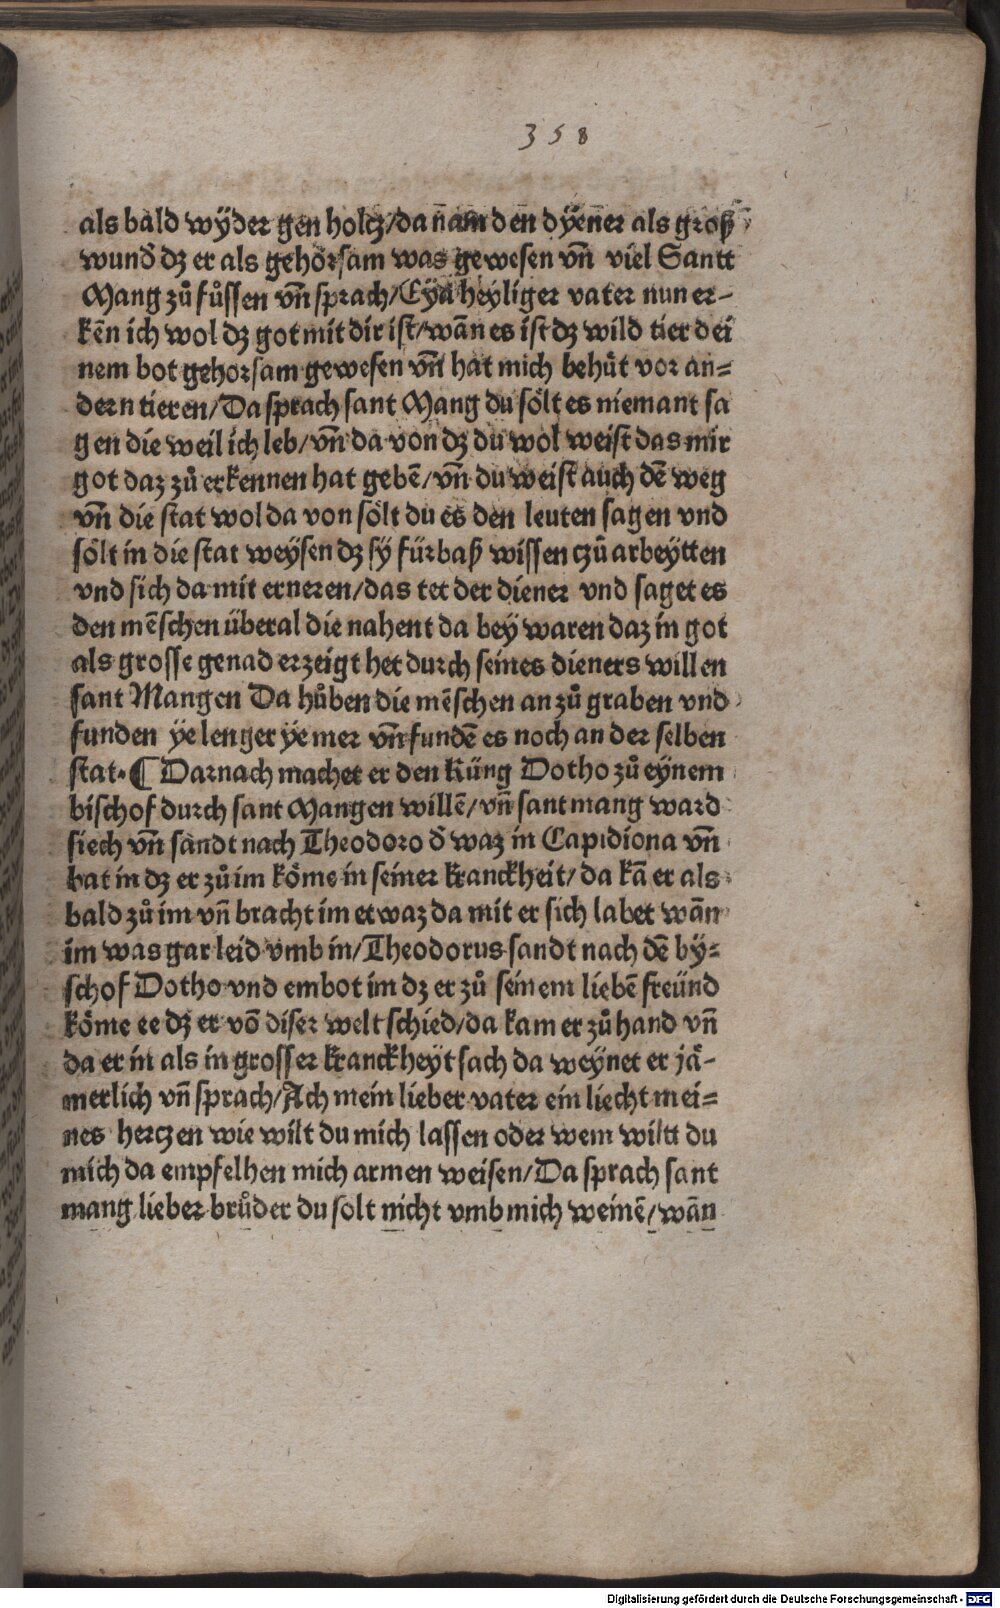 358
als bald wÿder gen holcz/da nam̄ den dÿener als groß
wund̄ dz er als gehörsam was gewesen vn̄ viel Santt
Mang zů fůssen vn̄ sprach/Eÿa heyliger vater nun er-
kēn ich wol dz got mit dir ist/wān es ist dz wild tier dei
nem bot gehorsam gewesen vn̄ hat mich behüt vor an=
dern tieren/Da sprach sant Mang du sölt es niemant sa
gen die weil ich leb/vn̄ da von dz du wol weist das mir
got daz zů erkennen hat gebē/vn̄ du weist auch dē weg
vn̄ die stat wol da von sölt du es den leuten sagen vnd
sölt in die stat weÿsen dz sÿ fürbaß wissen czů arbeÿtten
vnd sich da mit erneren/das tet der diener vnd saget es
den mēschen überal die nahent da beÿ waren daz in got
als grosse genad erzeigt het durch seines dieners willen
sant Mangen Da hůben die mēschen an zů graben vnd
funden ÿe lenger ÿe mer vn̄ fundē es noch an der selben
stat.¶ Darnach machet er den Küng Dotho zů eÿnem
bischof durch sant Mangen willē/vn̄ sant mang ward
siech vn̄ sandt nach Theodoro d̄ waz in Capidiona vn̄
bat in dz er zů im köme in seiner kranckheit/da kā er als
bald zů im vn̄ bracht im etwaz da mit er sich labet wān
im was gar leid vmb in/Theodorus sandt nach dē by=
schof Dotho vnd embot im dz er zů seinem liebē freünd
köme ee dz er vō diser welt schied/da kam er zů hand vn̄
da er in als in grosser kranckheÿt sach da weÿnet er jä-
merlich vn̄ sprach/Ach mein lieber vater ein liecht mei=
nes herczen wie wilt du mich lassen oder wem wiltt du
mich da empfelhen mich armen weisen/Da sprach sant
mang lieber brůder du solt nicht vmb mich weinē/wān
Digitalisierung gefördert durch die Deutsche Forschungsgemeinschaft - DFG